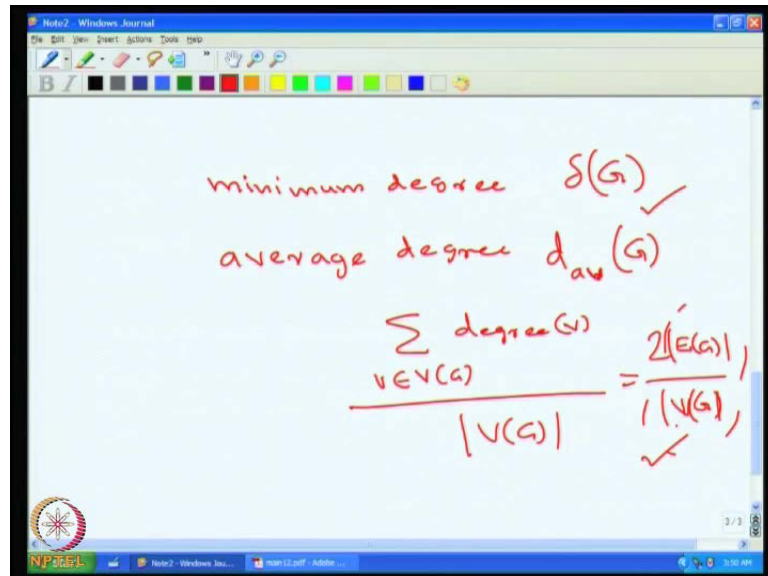 Note2 - Windows Journal
File Edit View Insert Actions Tools Help
B I
minimum degree δ(G) ✓
average degree d_av (G)
∑ degree(v)
v∈V(G)
|V(G)|
= 2|E(G)|
|V(G)|
✓
3/3
NPTEL
Note2 - Windows Jou...
main12.pdf - Adobe ...
3:50 AM